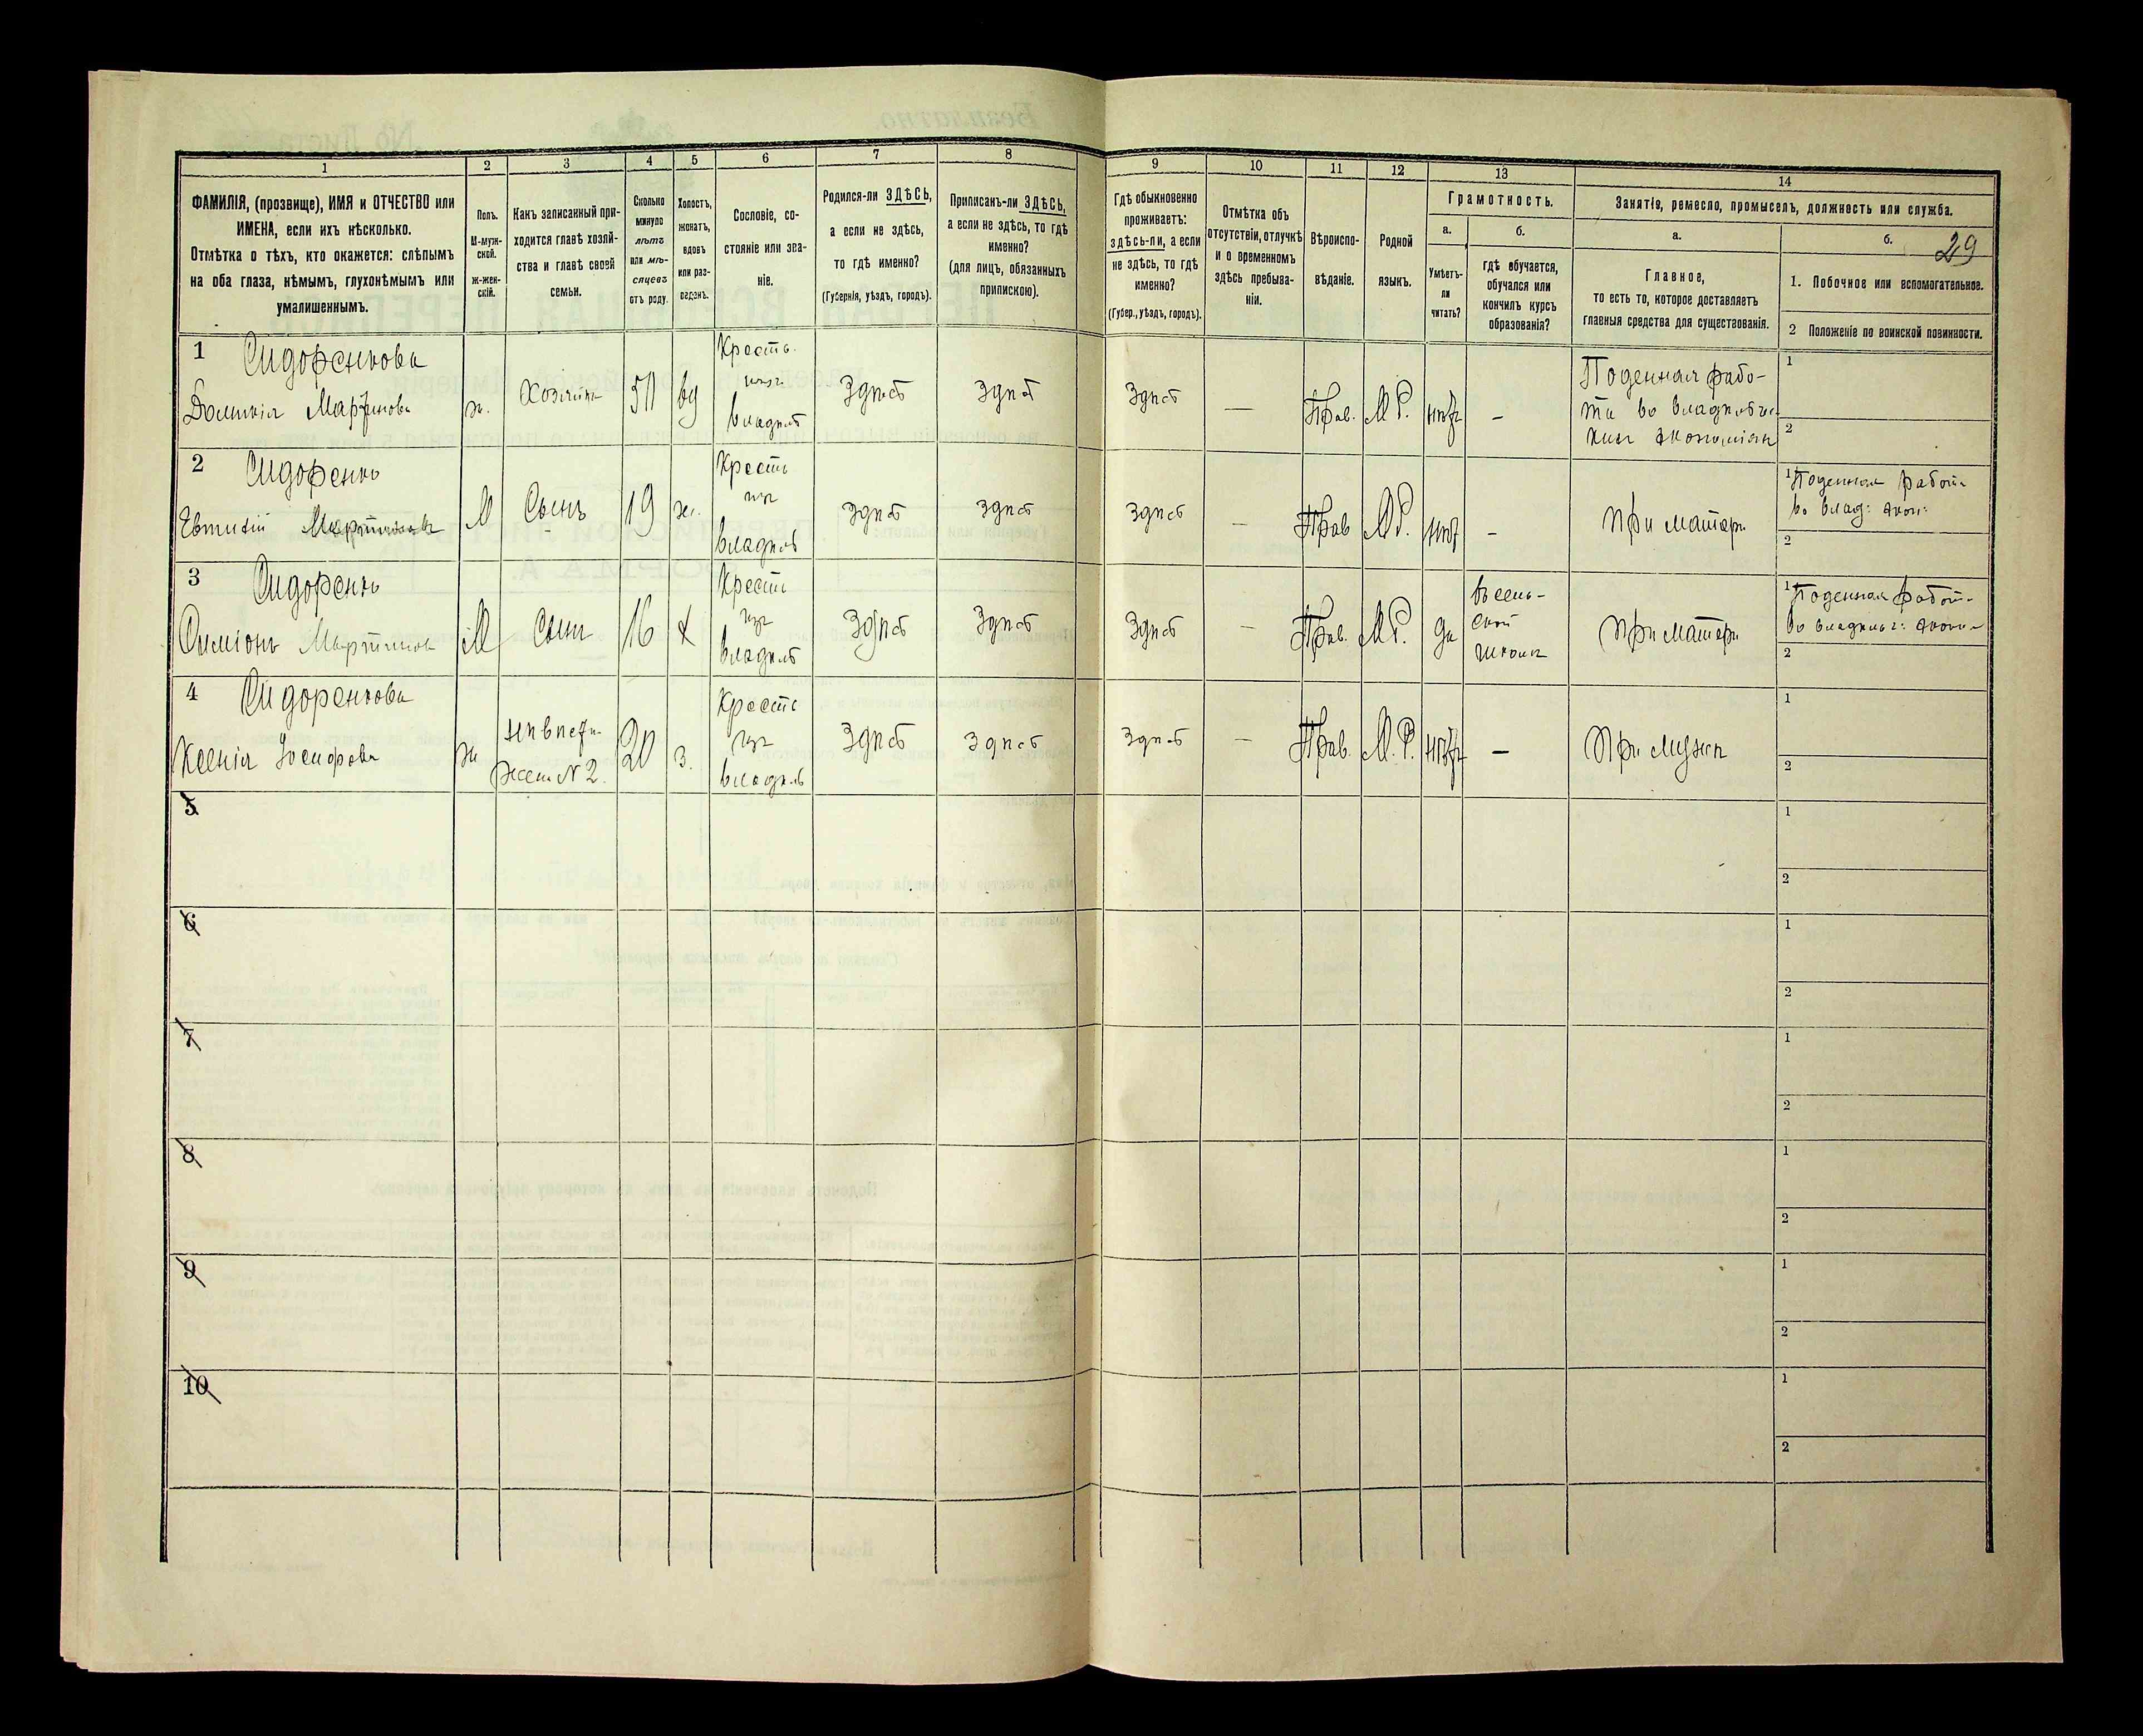 1 2 3 4 5 6 7 8 9 10 11 12 13 14
ФАМИЛІЯ, (прозвище), ИМЯ и ОТЧЕСТВО или
ИМЕНА, если ихъ нѣсколько.
Отмѣтка о тѣхъ, кто окажется: слѣпымъ
на оба глаза, нѣмымъ, глухонѣмымъ или
умалишеннымъ.
Полъ.
М-муж-
ской.
Ж-жен-
скій.
Какъ записанный при-
ходится главѣ хозяй-
ства и главѣ своей
семьи.
Сколько
минуло
лѣтъ
или мѣ-
сяцевъ
отъ роду.
Холостъ,
женатъ,
вдовъ
или раз-
веденъ.
Сословіе, со-
стояніе или зва-
ніе.
Родился-ли ЗДѢСЬ,
а если не здѣсь,
то гдѣ именно?
(Губернія, уѣздъ, городъ).
Приписанъ-ли ЗДѢСЬ,
а если не здѣсь, то гдѣ
именно?
(для лицъ, обязанныхъ
припискою).
Гдѣ обыкновенно
проживаетъ:
здѣсь-ли, а если
не здѣсь, то гдѣ
именно?
(Губер., уѣздъ, городъ).
Отмѣтка объ
отсутствіи, отлучкѣ
и о временномъ
здѣсь пребыва-
ніи.
Вѣроиспо-
вѣданіе.
Родной
языкъ.
Грамотность.
а.
Умѣетъ-
ли
читать?
б.
гдѣ обучается,
обучался или
кончилъ курсъ
образованія?
Занятіе, ремесло, промыселъ, должность или служба.
а.
Главное,
то есть то, которое доставляетъ
главныя средства для существованія.
б.
29
1. Побочное или вспомогательное.
2 Положеніе по воинской повинности.
1 Сидоренкова
Домникія Мартинова
ж.
Хозяйка
50
вд
Кресть.
изъ
владѣл
Здѣсь
Здѣсь
Здѣсь
—
Прав.
М Р.
нѣтъ
—
Поденная рабо-
та во владѣльче-
ских экономіях
1
2
2 Сидоренко
Евтихій Мартинов
М
Сынъ
19
ж.
Кресть
изъ
владѣл
Здѣсь
Здѣсь
Здѣсь
—
Прав
М Р.
нѣт
—
При матери
1 Поденная работ.
во влад: экон:
2
3 Сидоренко
Симіонъ Мартинов
М
Сынъ
16
х
Кресть
изъ
владѣл
Здѣсь
Здѣсь
Здѣсь
—
Прав.
М Р.
да
въ сель-
ской
школѣ
При матери
1 Поденная работ.
во владѣльч: экон.
2
4 Сидоренкова
Ксенія
ж
жена № 2.
20
з.
Кресть
изъ
владѣль
Здѣсь
Здѣсь
Здѣсь
—
Прав.
М. Р.
нѣтъ
—
При мужѣ
1
2
5
1
2
6
1
2
7
1
2
8
1
2
9
1
2
10
1
2